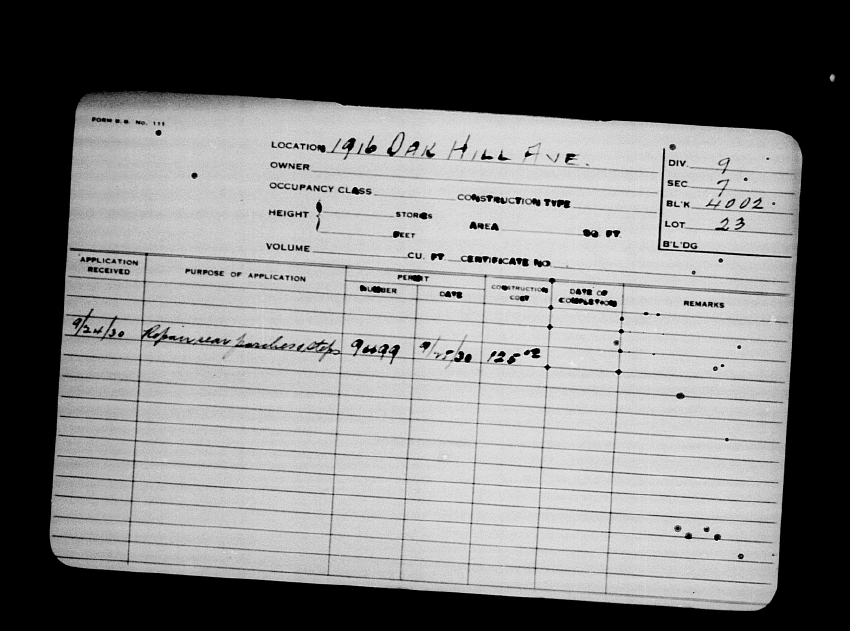 FORM B.B. No. 111
LOCATION 1916 OAK HILL AVE.
OWNER
OCCUPANCY CLASS CONSTRUCTION TYPE
HEIGHT { STORIES
FEET AREA SQ FT.
VOLUME CU. FT. CERTIFICATE NO.
DIV. 9
SEC 7
BL'K 4002
LOT 23
B'L'DG
APPLICATION RECEIVED PURPOSE OF APPLICATION PERMIT NUMBER DATE CONSTRUCTION COST DATE OF COMPLETION REMARKS
9/24/30 Repair rear porches, steps 9/ /30 125.00